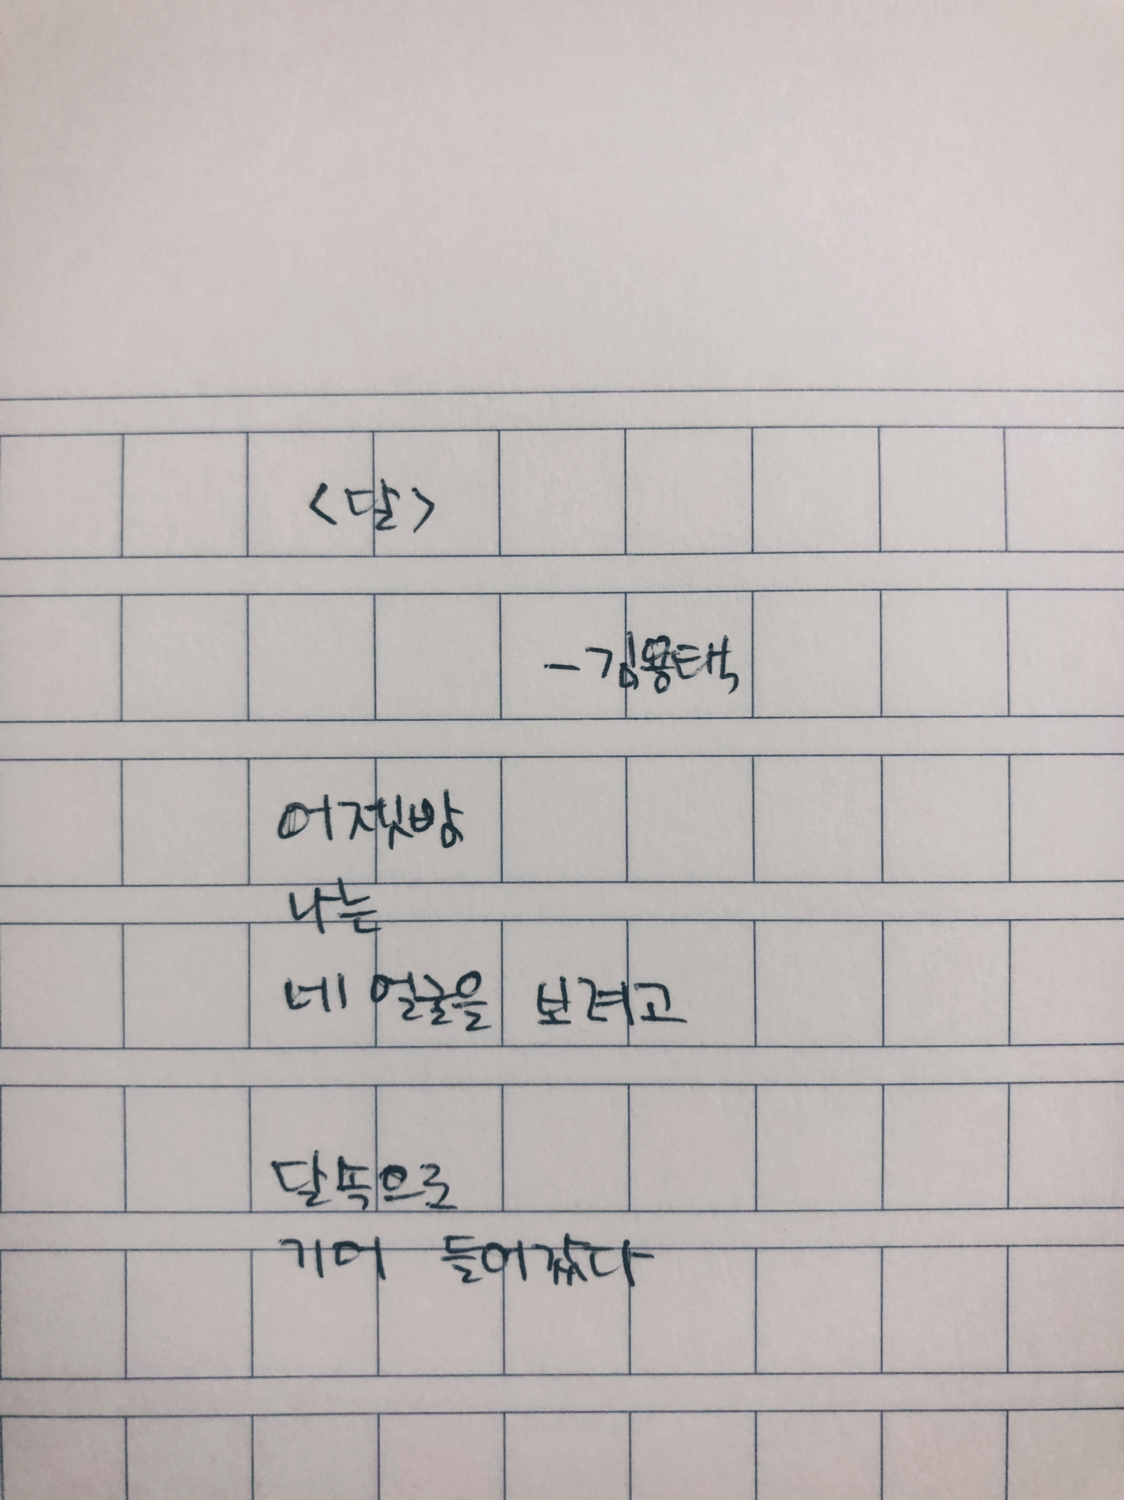 <달>
-김용택
어젯밤
나는
네 얼굴을 보려고
달 속으로
기어 들어갔다